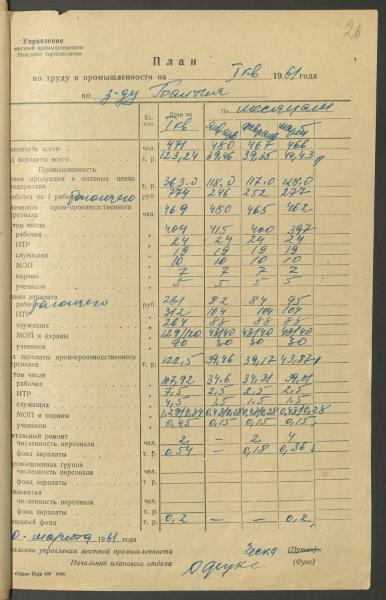 26
Управление
местной промышленности
Рижского горисполкома
План
по труду в промышленности на I кв 1961 года
по з-ду
Ед. изм. План на I кв По месяцам
январь февраль март
ленность всего чел. 471 480 467 466
д зарплаты всего т. р. 123,24 39,46 39,35 44,43
Промышленность
овая продукция в оптовых ценах
редприятия т. р. 363.0 118.0 117.0 128.0
аботка на 1 рабочего руб. 774 246 252 277
ленность пром-производственного
ерсонала чел. 469 480 465 462
том числе
рабочих 404 415 400 397
ИТР 24 24 24 24
служащих 19 19 19 19
МОП 10 10 10 10
охраны 7 7 7 7
учеников 5 5 5 5
дняя зарплата
рабочего руб 261 82 84 95
ИТР 312 104 104 104
служащих 264 88 88 88
МОП и охраны 129/120 43/40 43/40 43/40
учеников 90 30 30 30
д зарплаты пром-производственного
ерсонала т. р. 122,5 39,46 39,17 43,87
том числе
рабочих 107,92 34.6 34,31 39,01
ИТР 7,5 2,5 2,5 2,5
служащих 4,5 1,5 1,5 1,5
МОП и охраны 1,29/0,84 0,43/0,28 0,43/0,28 0,43/0,28
учеников 0,45 0,15 0,15 0,15
итальный ремонт
численность персонала чел. 2 — 2 4
фонд зарплаты т. р. 0,54 — 0,18 0,36
ромышленная группа
численность персонала чел.
фонд зарплаты т. р.
численность персонала чел.
фонд зарплаты т. р.
фонд т. р. 0,2 — 0,2
марта 1961 г.
альник управления местной промышленности
Начальник планового отдела (Фукс)
«Cīņa» Rīgā